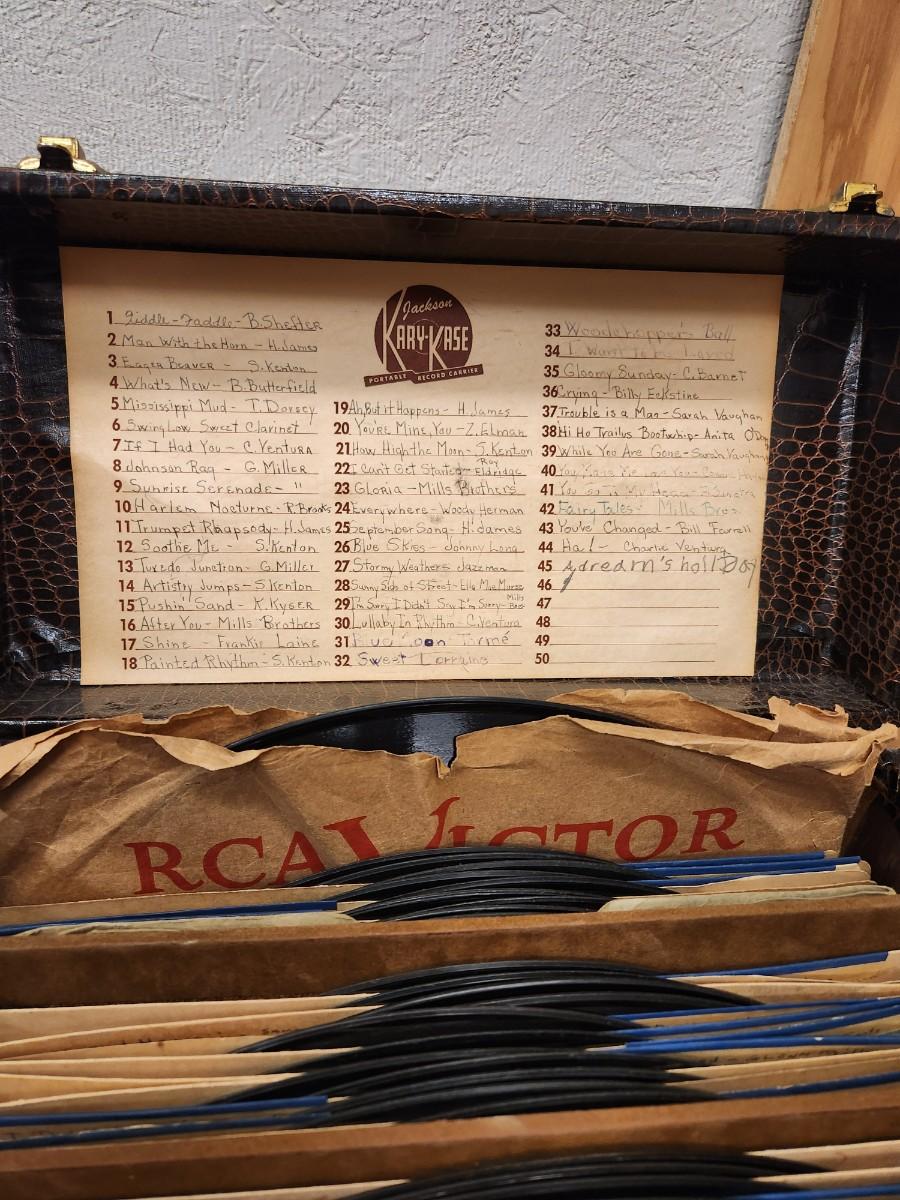 1 Fiddle-Faddle - B. Shefter
2 Man With the Horn - H. James
3 Eager Beaver - S. Kenton
4 What's New - B. Butterfield
5 Mississippi Mud - T. Dorsey
6 Swing Low Sweet Clarinet
7 If I Had You - C. Ventura
8 Johnson Rag - G. Miller
9 Sunrise Serenade - "
10 Harlem Nocturne - R. Brooks
11 Trumpet Rhapsody - H. James
12 Soothe Me - S. Kenton
13 Tuxedo Junction - G. Miller
14 Artistry Jumps - S. Kenton
15 Pushin' Sand - K. Kyser
16 After You - Mills Brothers
17 Shine - Frankie Laine
18 Painted Rhythm - S. Kenton
Jackson
KARY-KASE
PORTABLE RECORD CARRIER
19 Ah, But it Happens - H. James
20 You're Mine, You - Z. Elman
21 How High the Moon - S. Kenton
22 I Can't Get Started - Roy Eldridge
23 Gloria - Mills Brothers
24 Everywhere - Woody Herman
25 September Song - H. James
26 Blue Skies - Johnny Long
27 Stormy Weather
28 Sunny Side of Street - Ella Mae Morse
29 I'm Sorry I Didn't Say I'm Sorry - Mills Bros
30 Lullaby In Rhythm - C. Ventura
31 Blue Moon Tormé
32 Sweet Lorraine
33 Woodchopper's Ball
34 I Want To Be Loved
35 Gloomy Sunday - C. Barnet
36 Crying - Billy Eckstine
37 Trouble is a Man - Sarah Vaughan
38 Hi Ho Trailus Bootwhip - Anita O'Day
39 While You Are Gone - Sarah Vaughan
40
41 You Go To My Head - Sinatra
42 Fairy Tales - Mills Bros.
43 You've Changed - Bill Farrell
44 Ha! - Charlie Ventura
45 A dream's holiday
46
47
48
49
50
RCA VICTOR